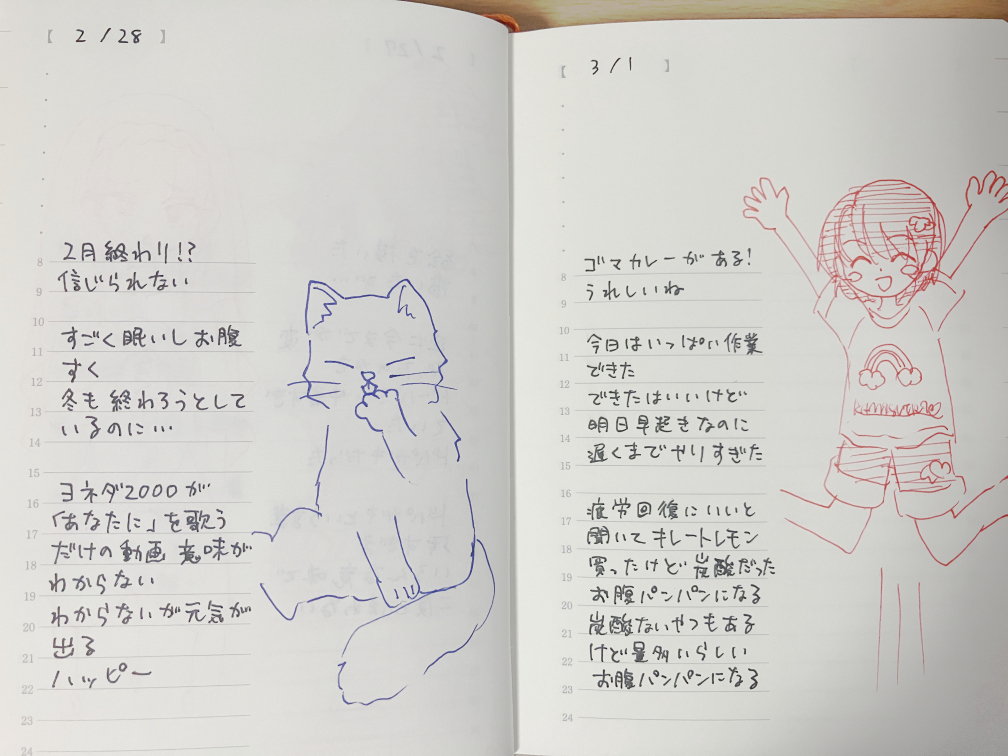 【 2 / 28 】
2月終わり!?
信じられない
すごく眠いしお腹
すく
冬も終わろうとして
いるのに…
ヨネダ2000が
「あなたに」を歌う
だけの動画 意味が
わからない
わからないが元気が
出る
ハッピー
8
9
10
11
12
13
14
15
16
17
18
19
20
21
22
23
24
【 3 / 1 】
ゴマカレーがある!
うれしいね
今日はいっぱい作業
できた
できたはいいけど
明日早起きなのに
遅くまでやりすぎた
疲労回復にいいと
聞いてキレートレモン
買ったけど炭酸だった
お腹パンパンになる
炭酸ないやつもある
けど量多いらしい
お腹パンパンになる
8
9
10
11
12
13
14
15
16
17
18
19
20
21
22
23
24